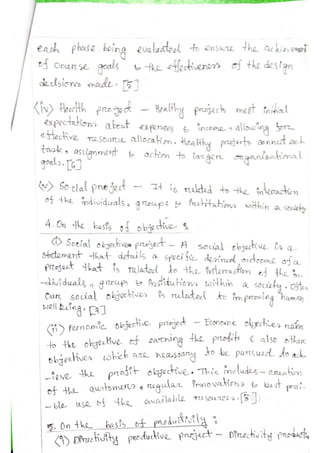 each phase being evaluated to ensure the achievement
of course goals & the effectiveness of the design
decisions made. [5]
(iv) Health project - Healthy projects meet initial
expectations about expenses & income - allowing for
effective resource allocation. Healthy projects connect each
task, assignment & action to larger organizational
goals. [6]
(v) Social project - It is related to the interaction
of the individuals, groups & institutions within a society
4. On the basis of objective :
(i) Social objective project - A social objective is a
statement that details a specific desired outcome of a
project that is related to the interaction of the in-
-dividuals, groups & institutions within a society. Often
our social objectives is related to improving human
well being. [7]
(ii) Economic objective project - Economic objectives refer
to the objective of earning the profit & also other
objectives which are necessary to be pursued to ach
-ieve the profit objective. This includes - creation
of the customers, regular innovations & best possi
-ble use of the available resources. [8]
5. On the basis of productivity :
(i) Directivity productive project - Directivity productive